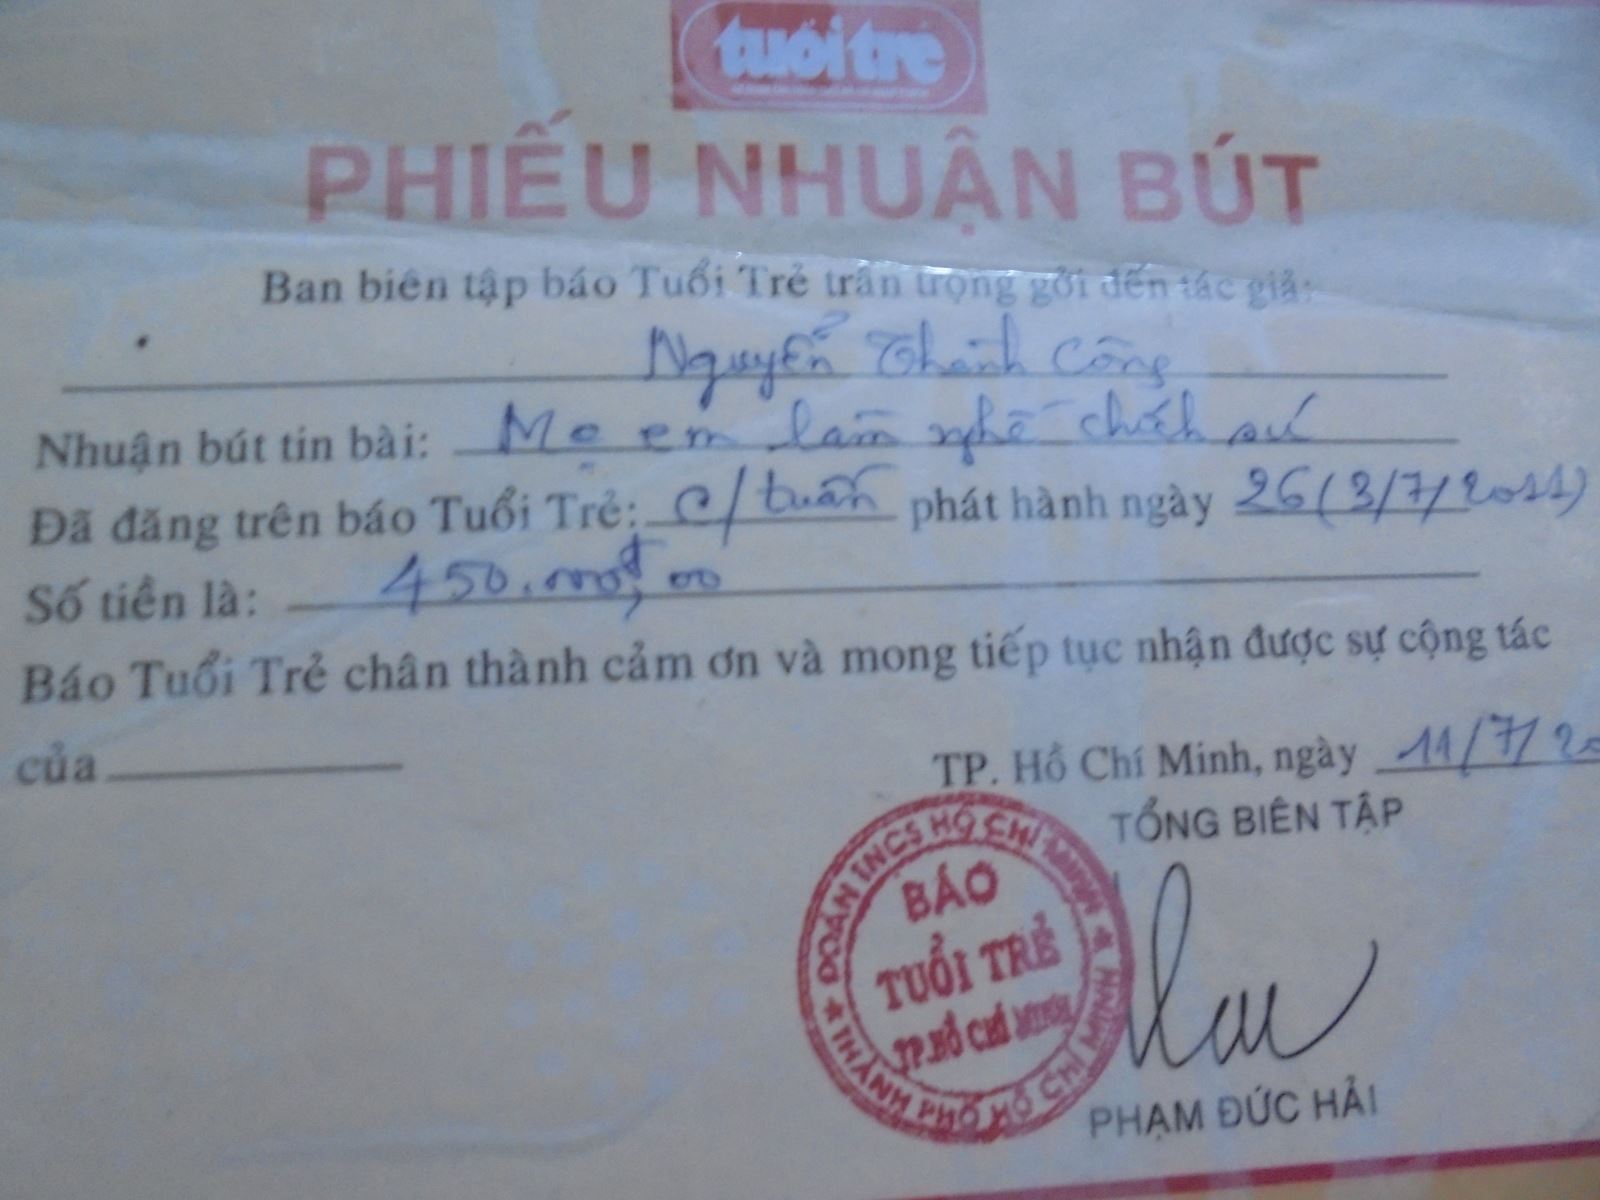 tuổi trẻ
PHIẾU NHUẬN BÚT
Ban biên tập báo Tuổi Trẻ trân trọng gởi đến tác giả:
Nguyễn Thành Công
Nhuận bút tin bài: Mẹ em làm nghề chách sứ
Đã đăng trên báo Tuổi Trẻ: c/tuần phát hành ngày 26(3/7/2011)
Số tiền là: 450.000đ,00
Báo Tuổi Trẻ chân thành cảm ơn và mong tiếp tục nhận được sự cộng tác
của
TP. Hồ Chí Minh, ngày 11/7/20
TỔNG BIÊN TẬP
ĐOÀN TNCS HỒ CHÍ MINH ★ THÀNH PHỐ HỒ CHÍ MINH ★
BÁO
TUỔI TRẺ
TP.HỒ CHÍ MINH
PHẠM ĐỨC HẢI